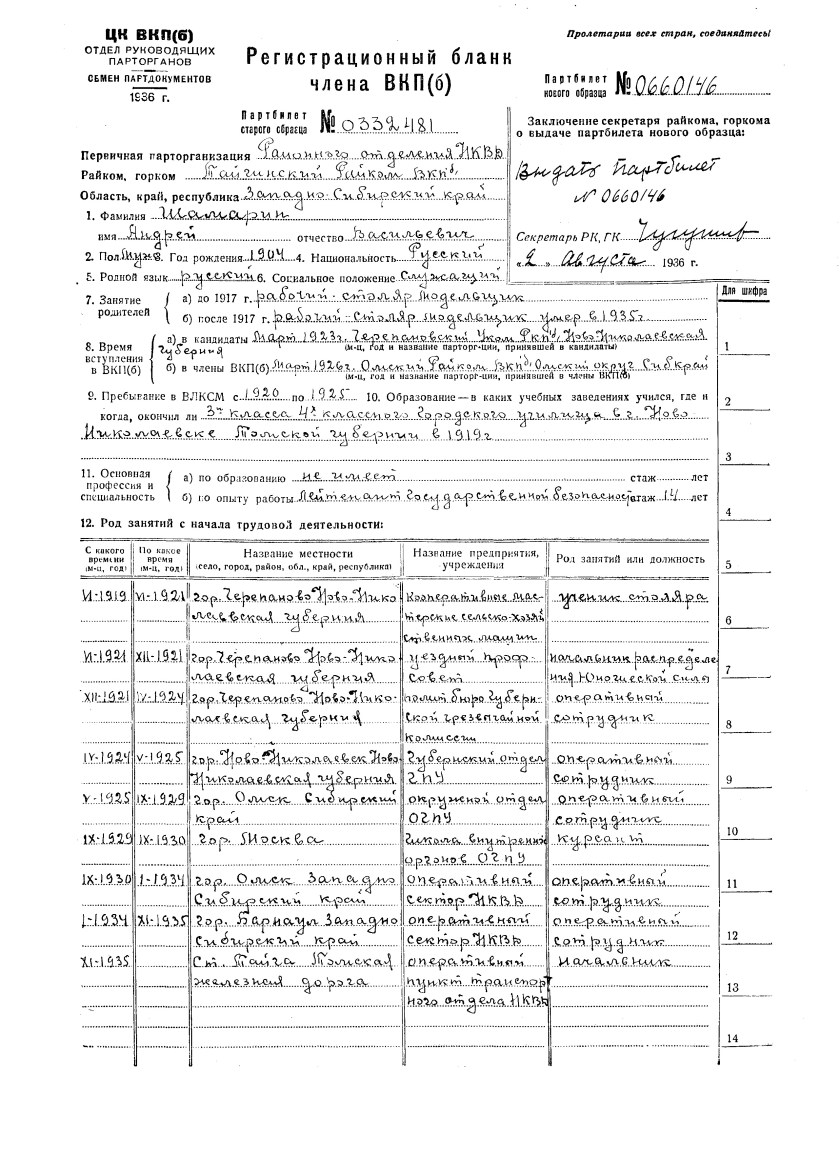 ЦК ВКП(б)
ОТДЕЛ РУКОВОДЯЩИХ
ПАРТОРГАНОВ
ОБМЕН ПАРТДОКУМЕНТОВ
1936 г.
Пролетарии всех стран, соединяйтесь!
Регистрационный бланк
члена ВКП(б)
Партбилет
нового образца №0660146
Партбилет
старого образца №0332481
Заключение секретаря райкома, горкома
о выдаче партбилета нового образца:
Выдать партбилет
N 0660146
Секретарь РК, ГК
„2„ Августа 1936 г.
Первичная парторганизация Районного отделения НКВД
Райком, горком Тайгинский Райком ВКПб
Область, край, республика Западно-Сибирский край
1. Фамилия Шамарин
имя Андрей отчество Васильевич
2. Пол Муж 3. Год рождения 1904 4. Национальность Русский
5. Родной язык русский 6. Социальное положение Служащий
7. Занятие родителей
а) до 1917 г. рабочий-столяр модельщик
б) после 1917 г. рабочий-столяр модельщик умер в 1935г.
8. Время вступления в ВКП(б)
а) в кандидаты Март 1923г. Черепановский Уком РКПб, Ново-Николаевская
губерния (м-ц, год и название парторг-ции, принявшей в кандидаты)
б) в члены ВКП(б) Март 1926г. Омский Райком ВКПб Омский округ Сибкрай
(м-ц, год и название парторг-ции, принявшей в члены ВКП(б))
9. Пребывание в ВЛКСМ с 1920 по 1925 10. Образование—в каких учебных заведениях учился, где и
когда, окончил ли 3 класса 4х классного Городского училища в г. Ново
Николаевске Томской губернии в 1919г
11. Основная профессия и специальность
а) по образованию не имеет стаж лет
б) по опыту работы Лейтенант Государственной безопасност стаж 14 лет
12. Род занятий с начала трудовой деятельности:
С какого времени (м-ц, год) По какое время (м-ц, год) Название местности (село, город, район, обл., край, республика) Название предприятия, учреждения Род занятий или должность
VI-1919 VI-1921 гор. Черепаново Ново-Нико Кооперативные мас- ученик столяра
лаевская губерния терские сельско-хозяй
ственных машин
VI-1921 XII-1921 гор. Черепаново Ново-Нико уездный проф начальник распределе
лаевская губерния совет ния Юношеской силы
XII-1921 IV-1924 гор. Черепаново Ново-Нико- полит бюро Губерн- оперативный
лаевская губерния ской чрезвычайной сотрудник
комиссии
IV-1924 V-1925 гор. Ново-Николаевск Ново Губернский отдел оперативный
Николаевская губерния ГПУ сотрудник
V-1925 IX-1929 гор. Омск Сибирский окружной отдел оперативный
край ОГПУ сотрудник
IX-1929 IX-1930 гор. Москва Школа внутренних курсант
органов ОГПУ
IX-1930 I-1934 гор. Омск Западно оперативный оперативный
Сибирский край сектор НКВД сотрудник
I-1934 XI-1935 гор. Барнаул Западно оперативный оперативный
Сибирский край сектор НКВД сотрудник
XI-1935 Ст. Тайга Томская оперативный начальник
железная дорога пункт транспорт
ного отдела НКВД
Для шифра
1
2
3
4
5
6
7
8
9
10
11
12
13
14